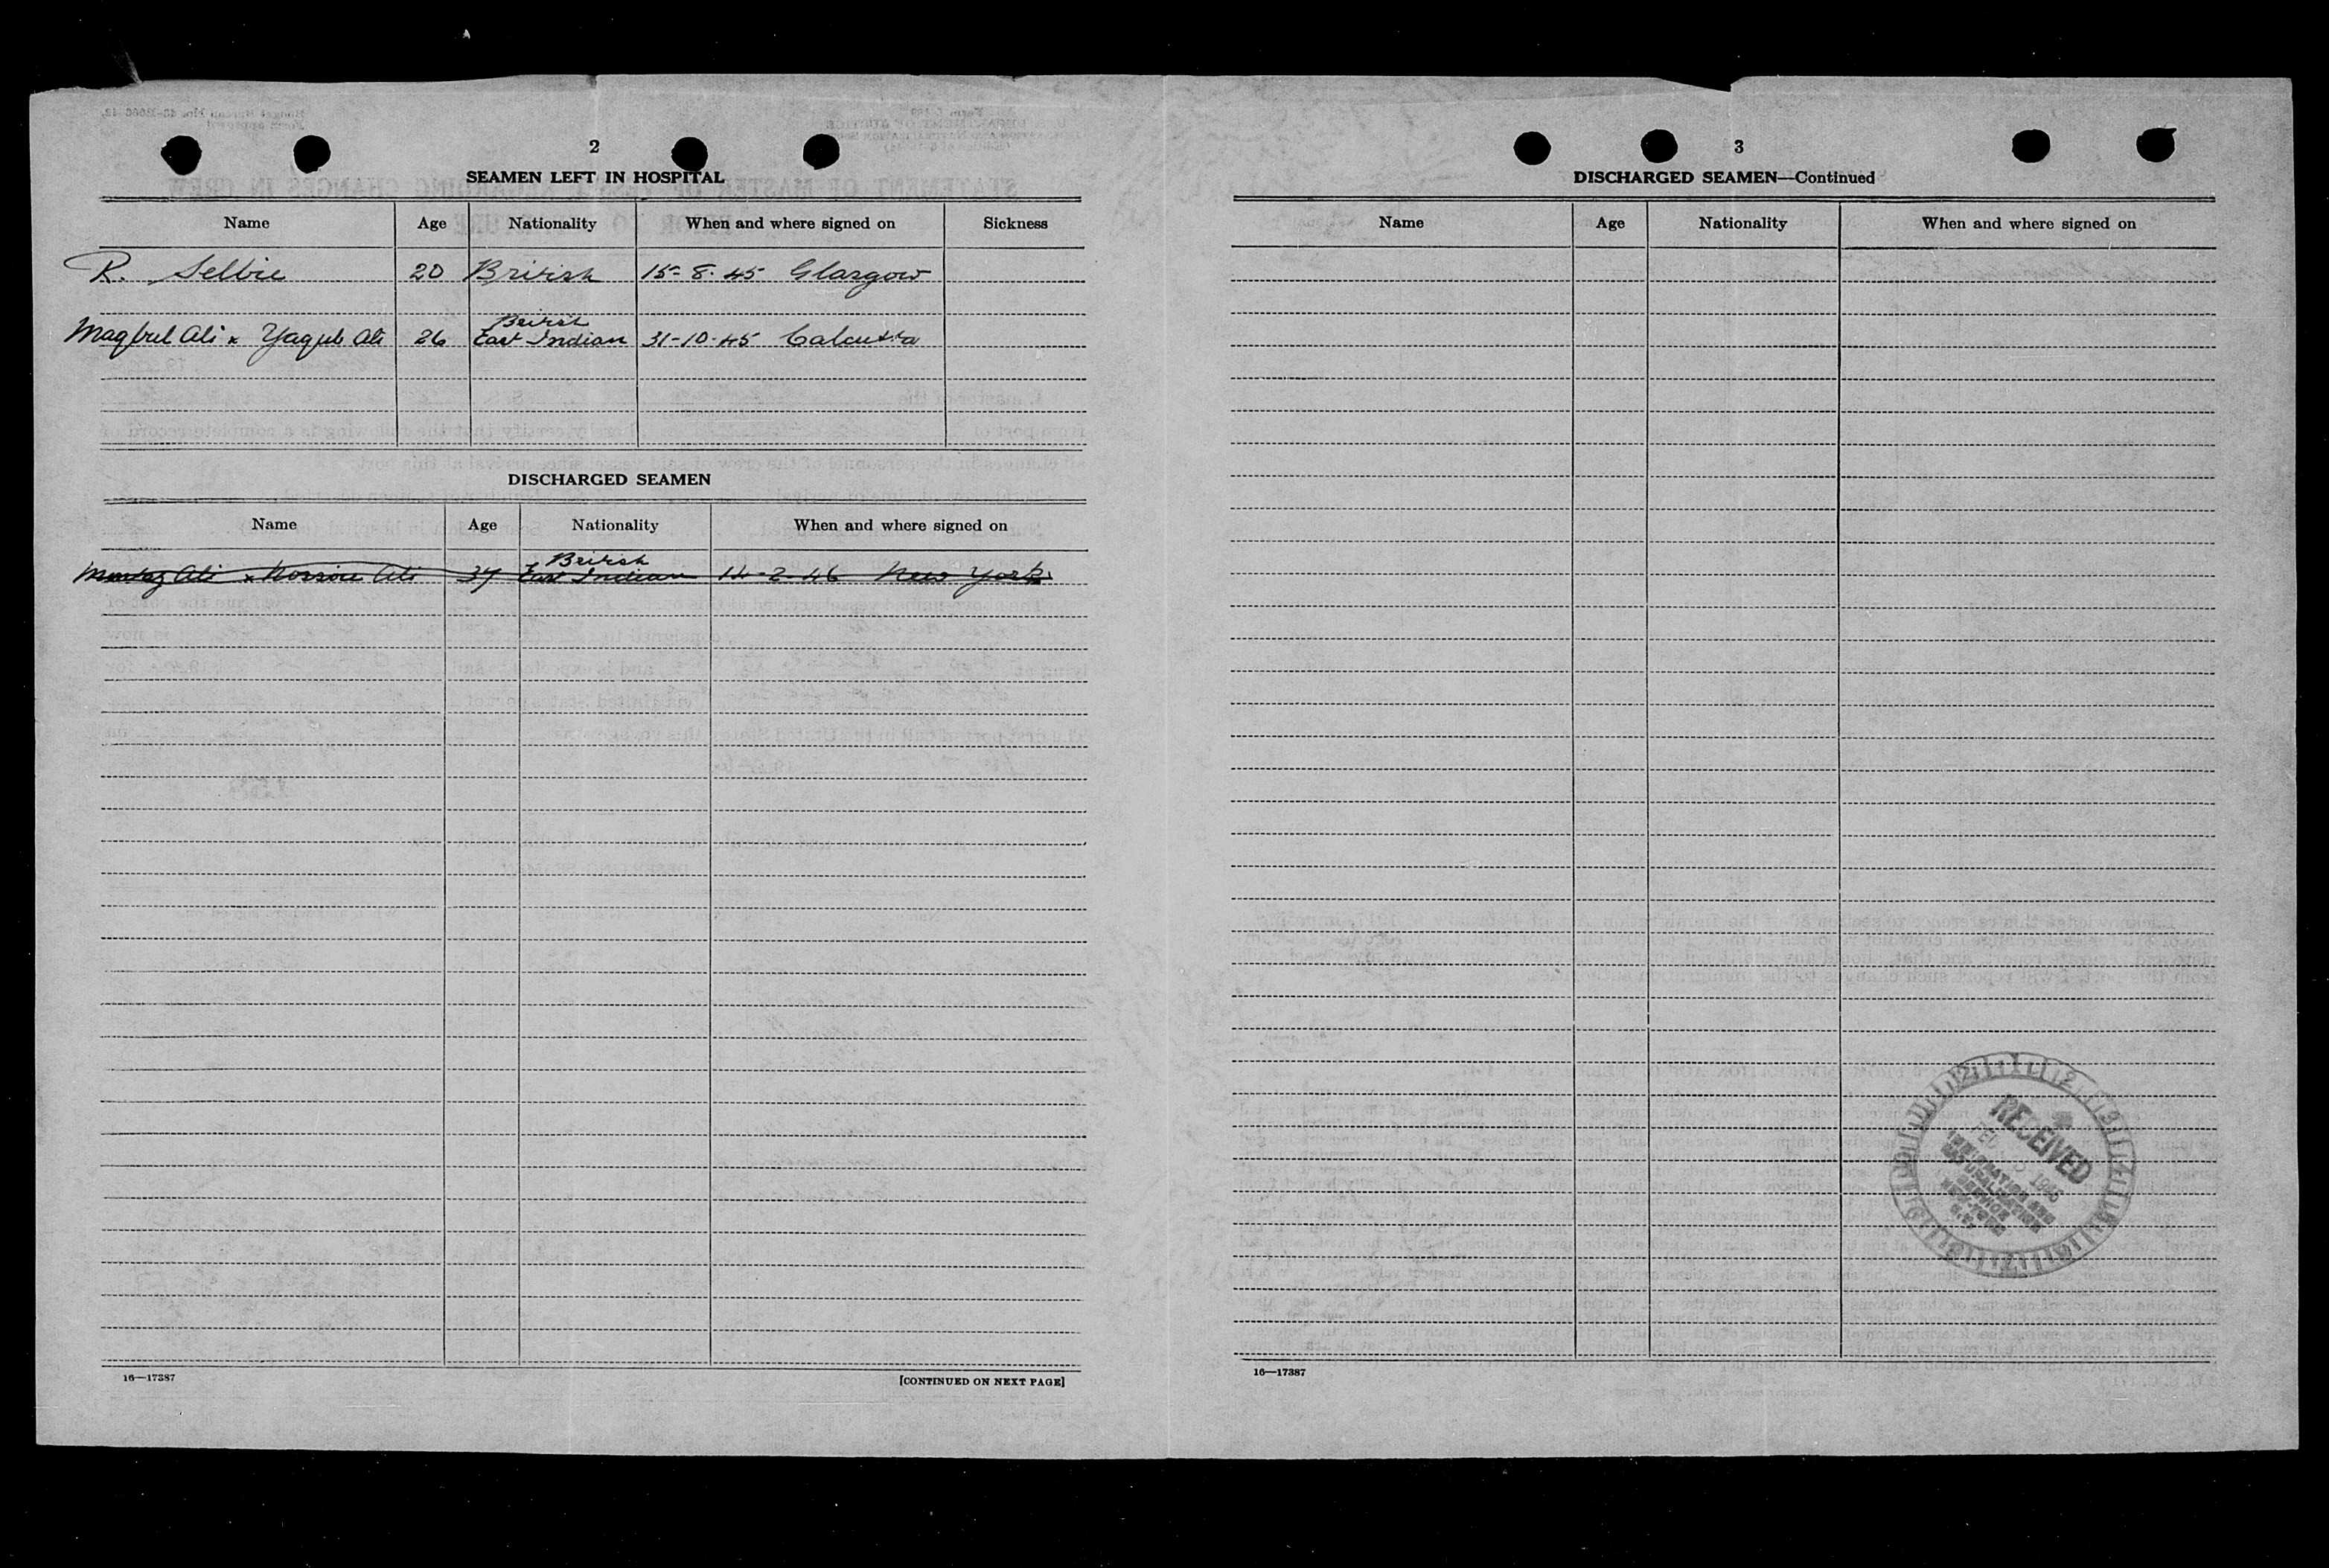 2
SEAMEN LEFT IN HOSPITAL
Name Age Nationality When and where signed on Sickness
R. Selbie 20 British 15-8-45 Glasgow
Maqbul Ali x Yaqub Ali 26 British East Indian 31-10-45 Calcutta
DISCHARGED SEAMEN
Name Age Nationality When and where signed on
Ali x Ali 37 British East Indian 14-2-46 New York
16—17387 [CONTINUED ON NEXT PAGE]
3
DISCHARGED SEAMEN—Continued
Name Age Nationality When and where signed on
RECEIVED
IMMIGRATION AND
NATURALIZATION
SERVICE
NEW YORK
16—17387